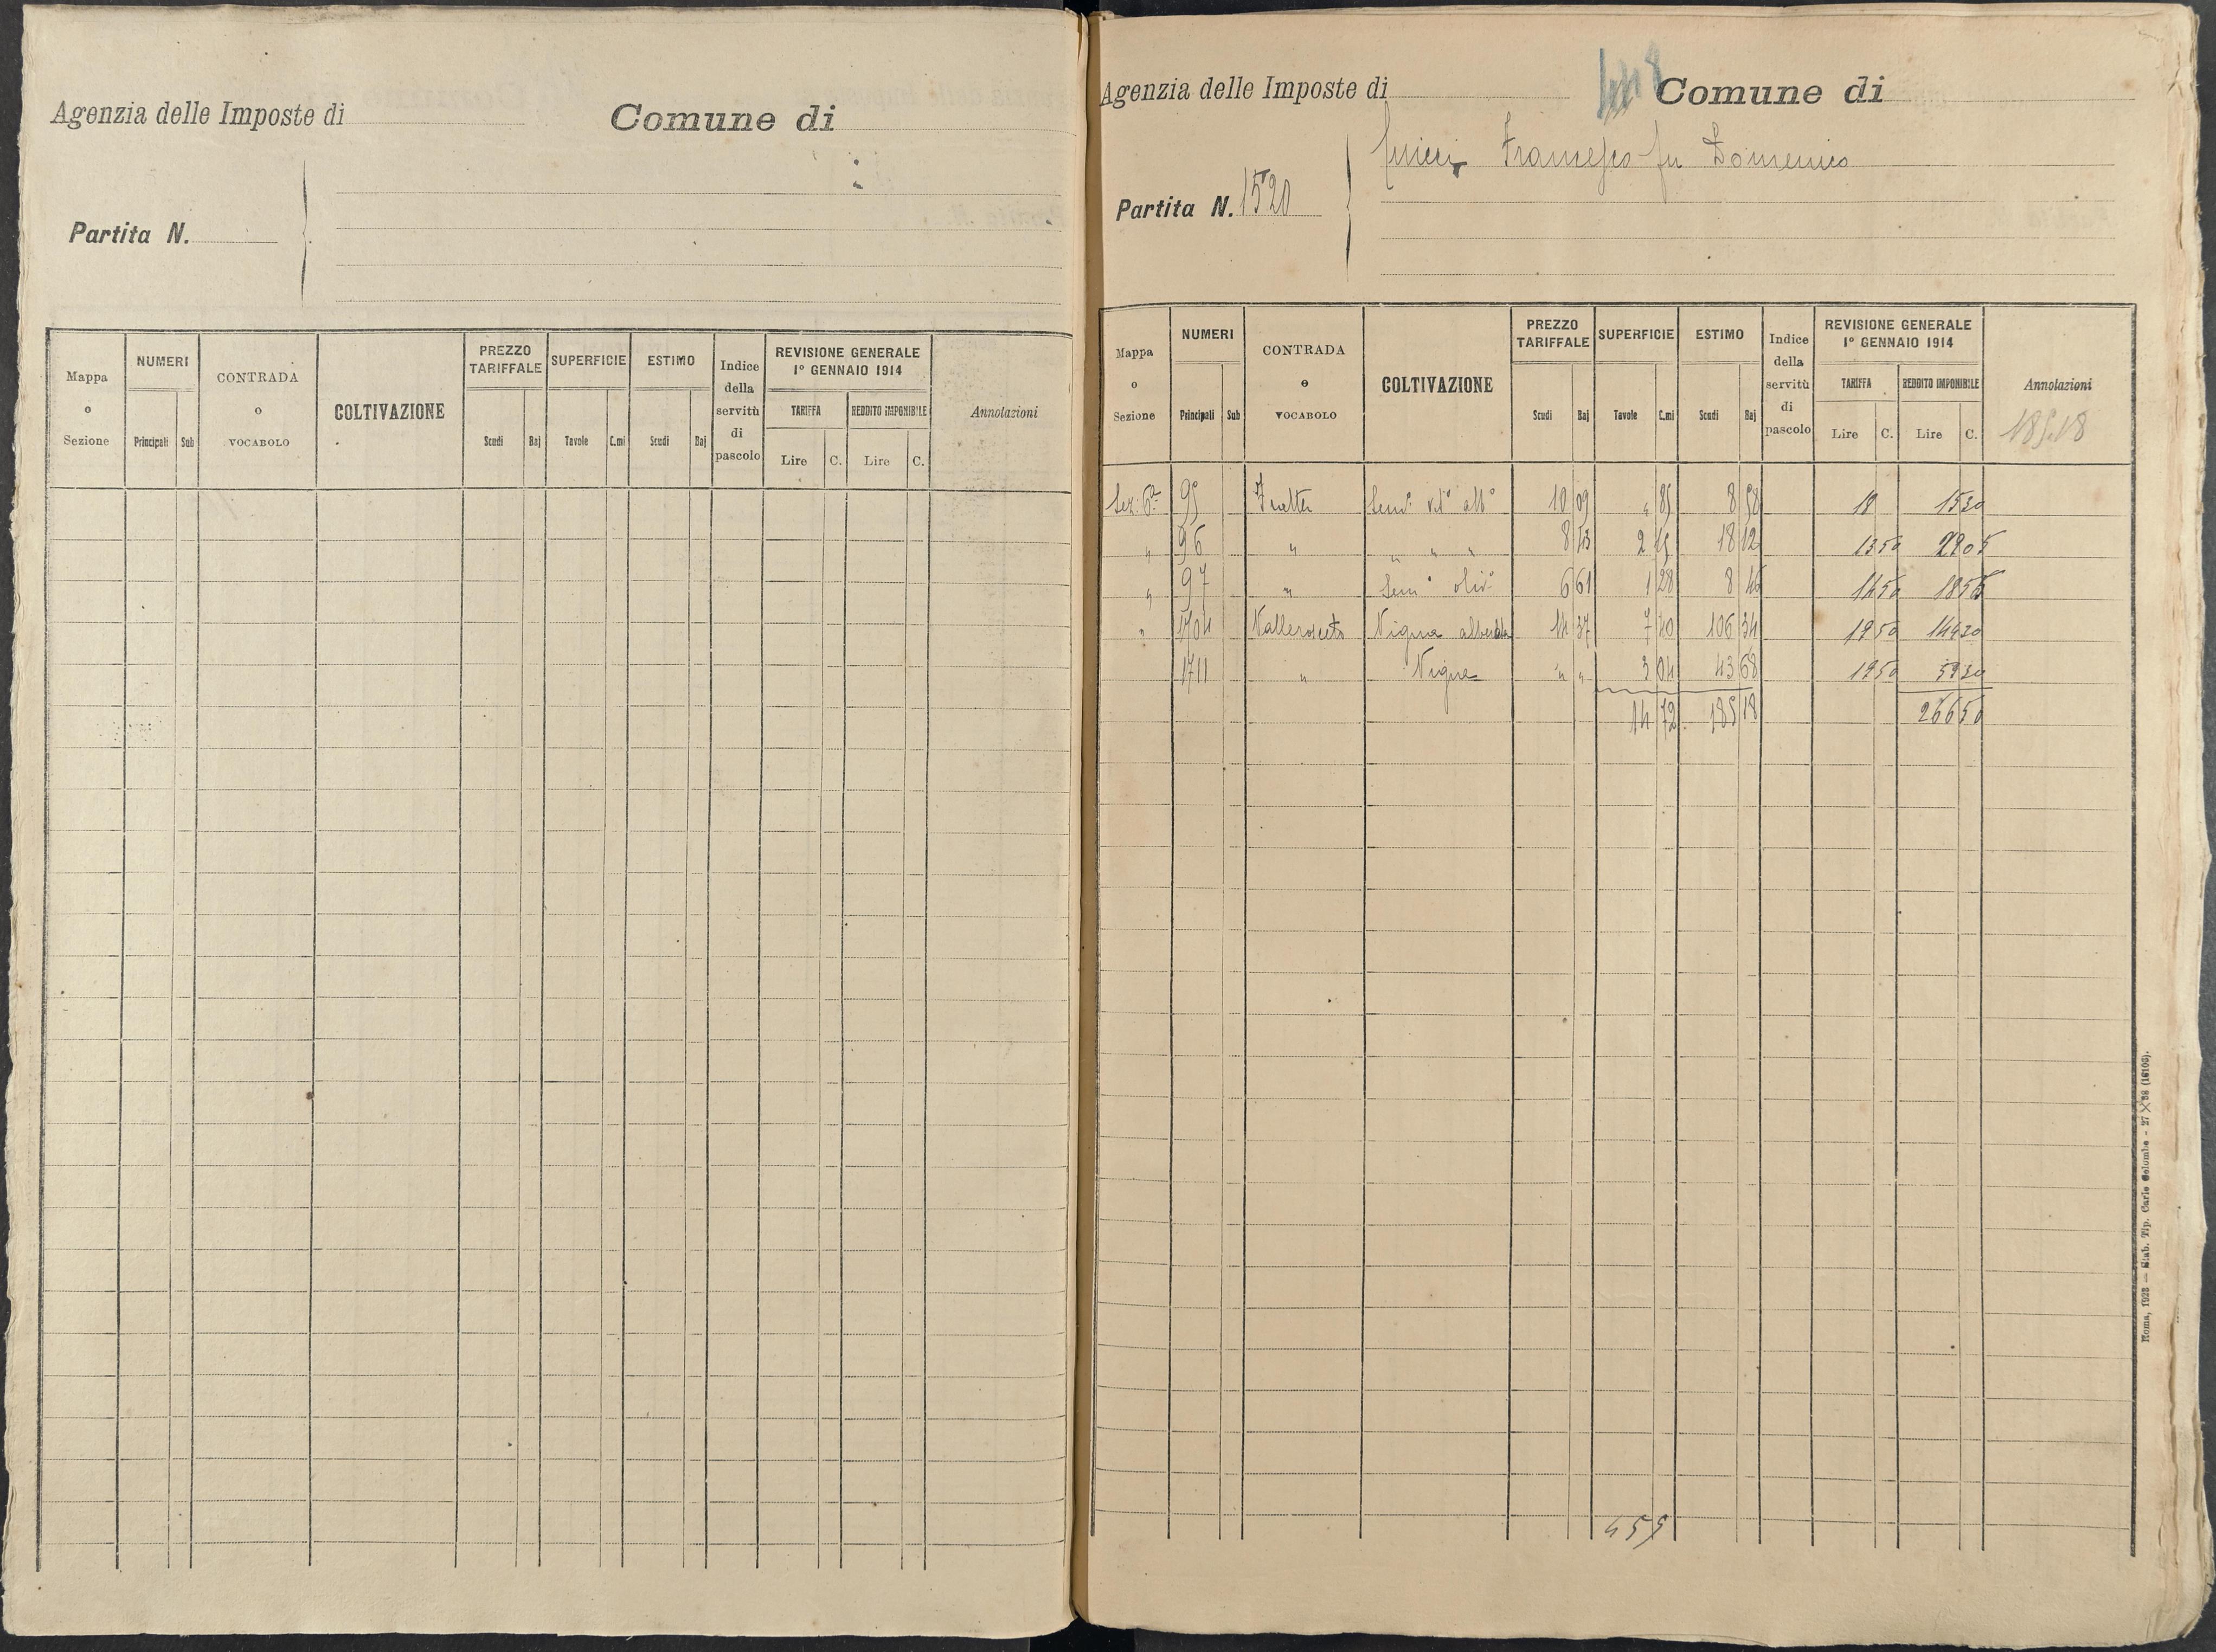 Agenzia delle Imposte di
Comune di
Partita N.
Mappa o Sezione
NUMERI
Principali Sub
CONTRADA o VOCABOLO
COLTIVAZIONE
PREZZO TARIFFALE
Scudi Baj
SUPERFICIE
Tavole C.mi
ESTIMO
Scudi Baj
Indice della servitù di pascolo
REVISIONE GENERALE
1° GENNAIO 1914
TARIFFA REDDITO IMPONIBILE
Lire C. Lire C.
Annotazioni
448
Agenzia delle Imposte di Comune di
Francesco fu Domenico
Partita N. 1520
Mappa o Sezione
NUMERI
Principali Sub
CONTRADA o VOCABOLO
COLTIVAZIONE
PREZZO TARIFFALE
Scudi Baj
SUPERFICIE
Tavole C.mi
ESTIMO
Scudi Baj
Indice della servitù di pascolo
REVISIONE GENERALE
1° GENNAIO 1914
TARIFFA REDDITO IMPONIBILE
Lire C. Lire C.
Annotazioni
185.18
Sez. 6a 95 Fratte Sem° vit° alb° 10 09 " 85 8 58 18 15 30
" 96 " " " " 8 43 2 15 18 12 13 50 29 05
" 97 " Sem° oliv° 6 61 1 28 8 46 14 50 18 55
" 1704 Vigna alberata 14 37 7 40 106 34 19 50 144 30
1711 " Vigna " " 3 04 43 68 19 50 59 30
14 72 185 18 266 50
455
Roma, 1923 — Stab. Tip. Carlo Colombo - 27 X 38 (16103).